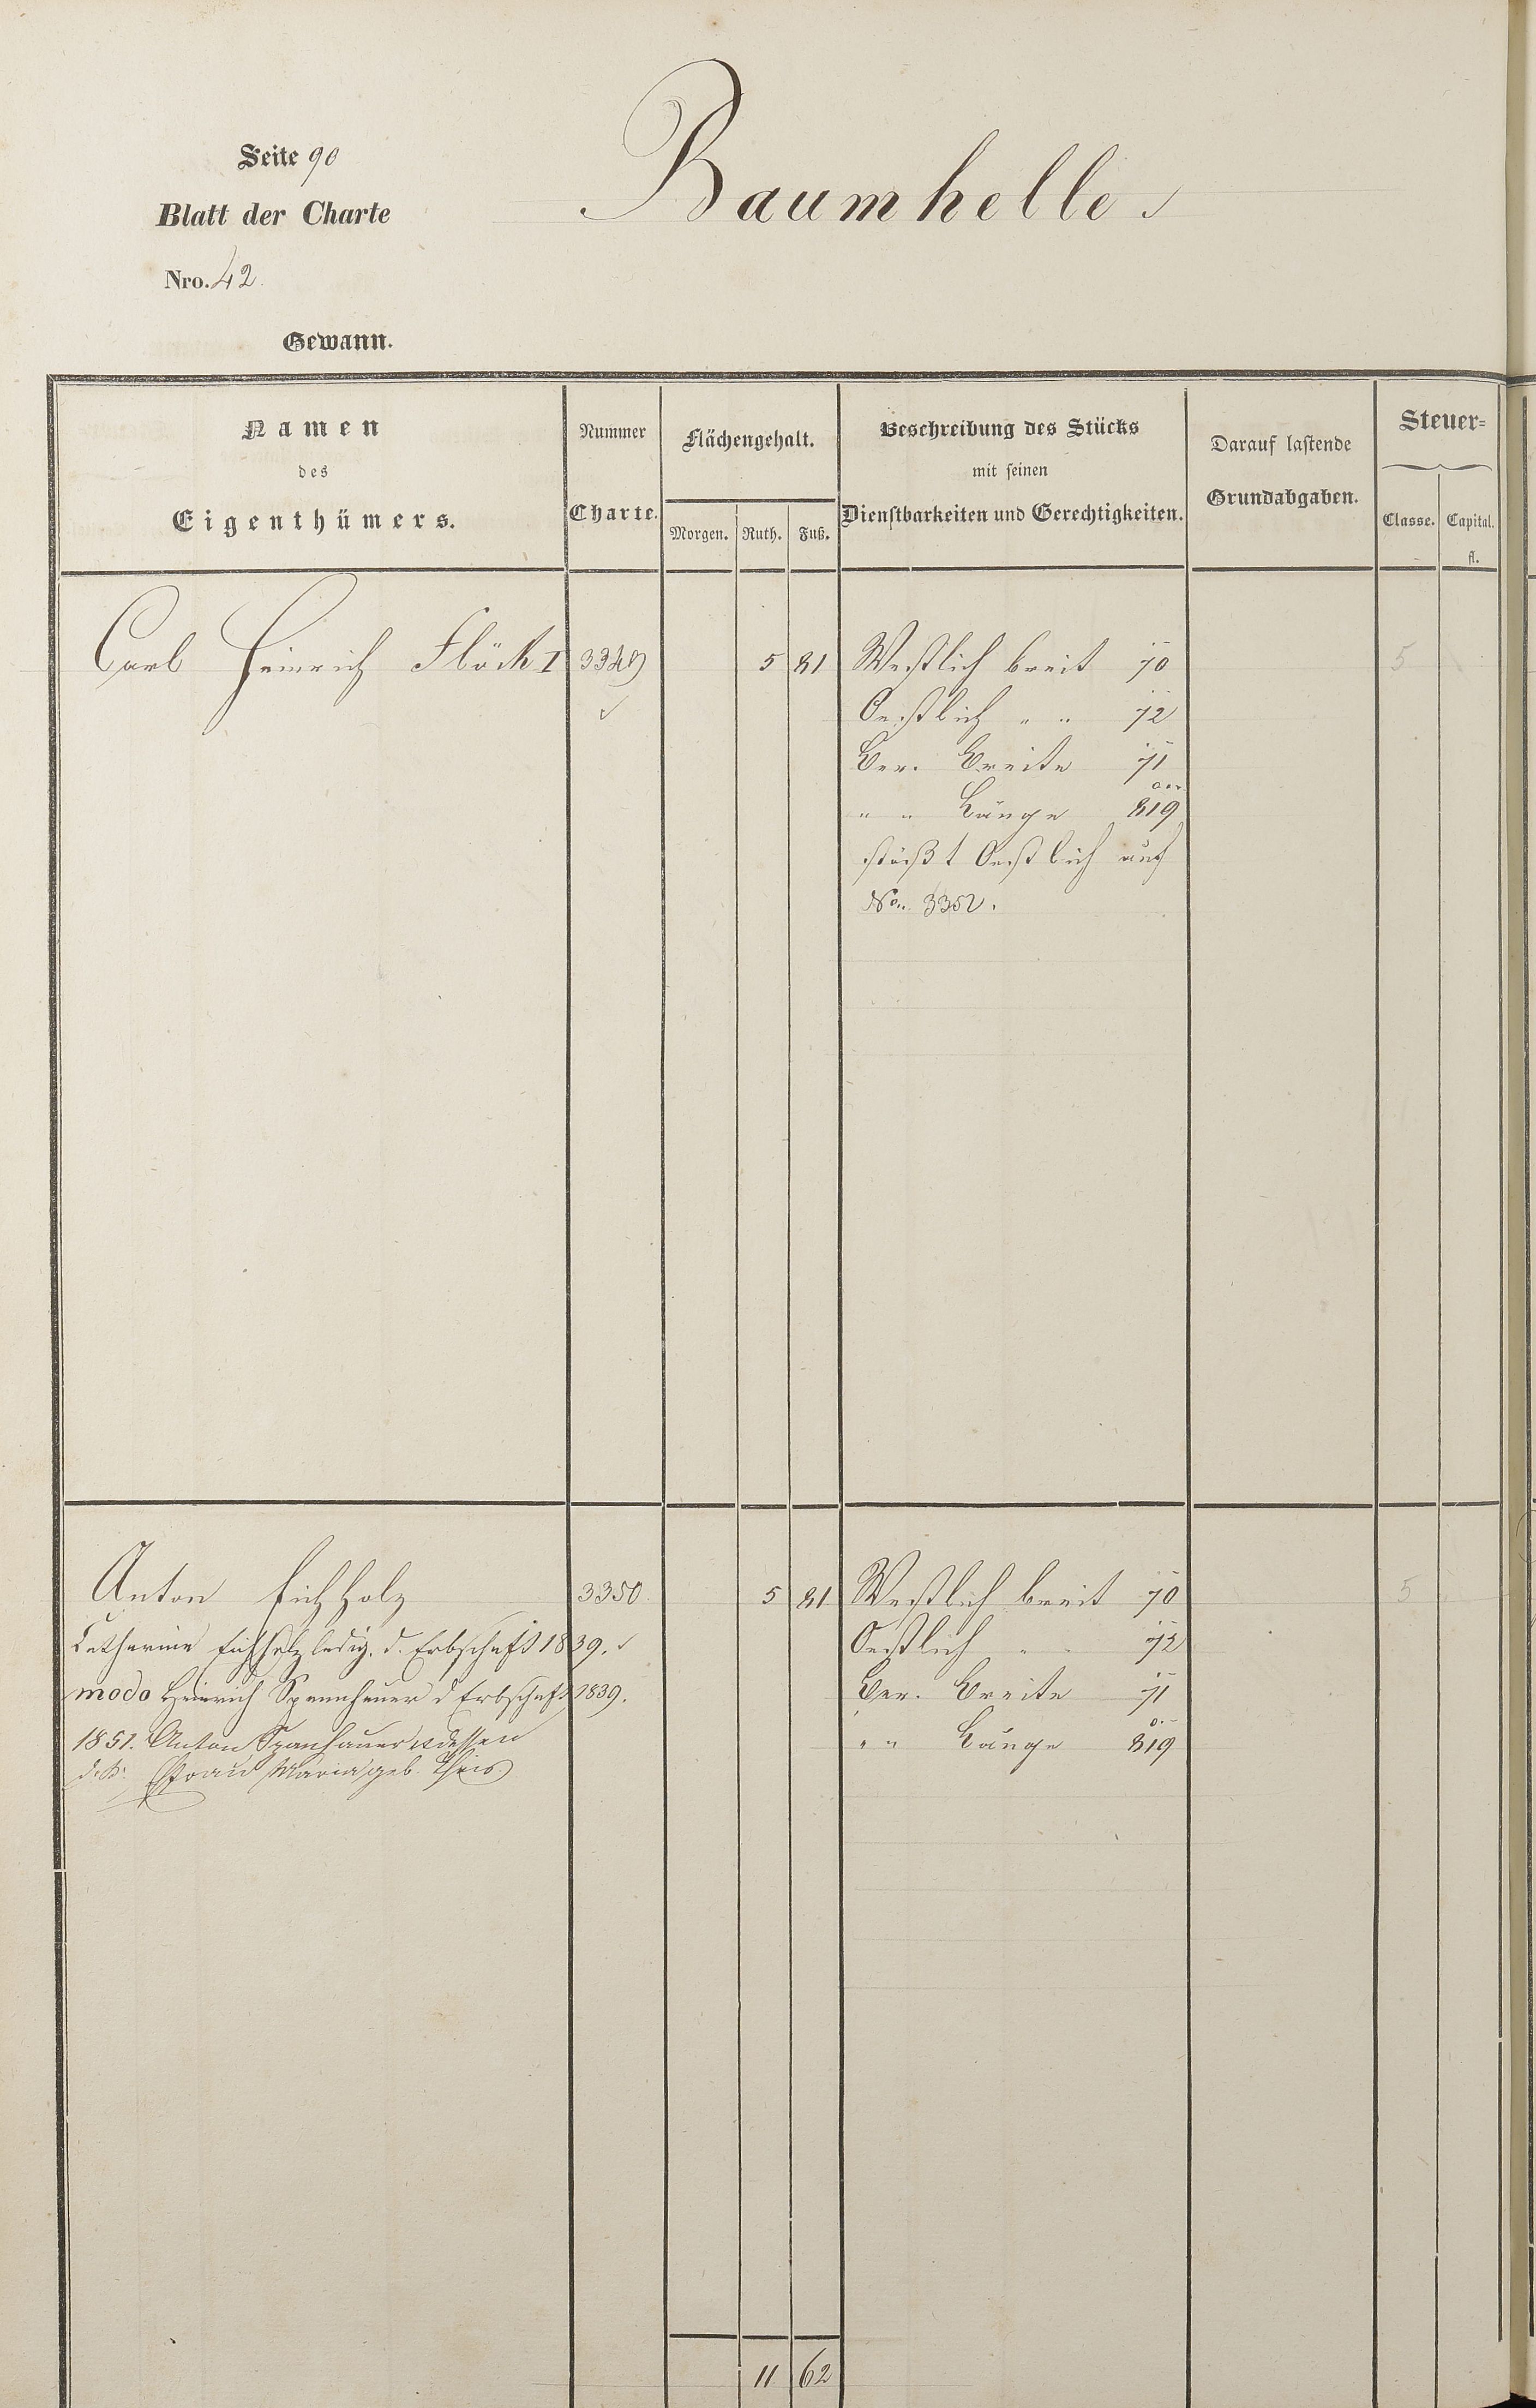 Seite 90
Baumhelle
Blatt der Charte
Nro. 42.
Gewann.
Namen des Eigenthümers.
Nummer Charte.
Flächengehalt.
Morgen. Ruth. Fuß.
Beschreibung des Stücks
mit seinen
Dienstbarkeiten und Gerechtigkeiten.
Darauf lastende
Grundabgaben.
Steuer-
Classe. Capital.
fl.
Carl Heinrich Flöck I 3349 5 81 Westlich breit 70 5
Oestlich " " 72
Ver. Breite 71
" " Länge 819
stößt Oestlich auf
No. 3352.
Anton Eichholz 3350. 5 81 Westlich breit 70 5
Catharine Eichholz ledig. d. Erbschaft 1839. Oestlich " " 72
modo Heinrich Spanhauer d Erbschaft 1839. Ver. Breite 71
1851. Anton Spanhauer u dessen " " Länge 819
d. K. Efrau Maria geb. Theis
11 62